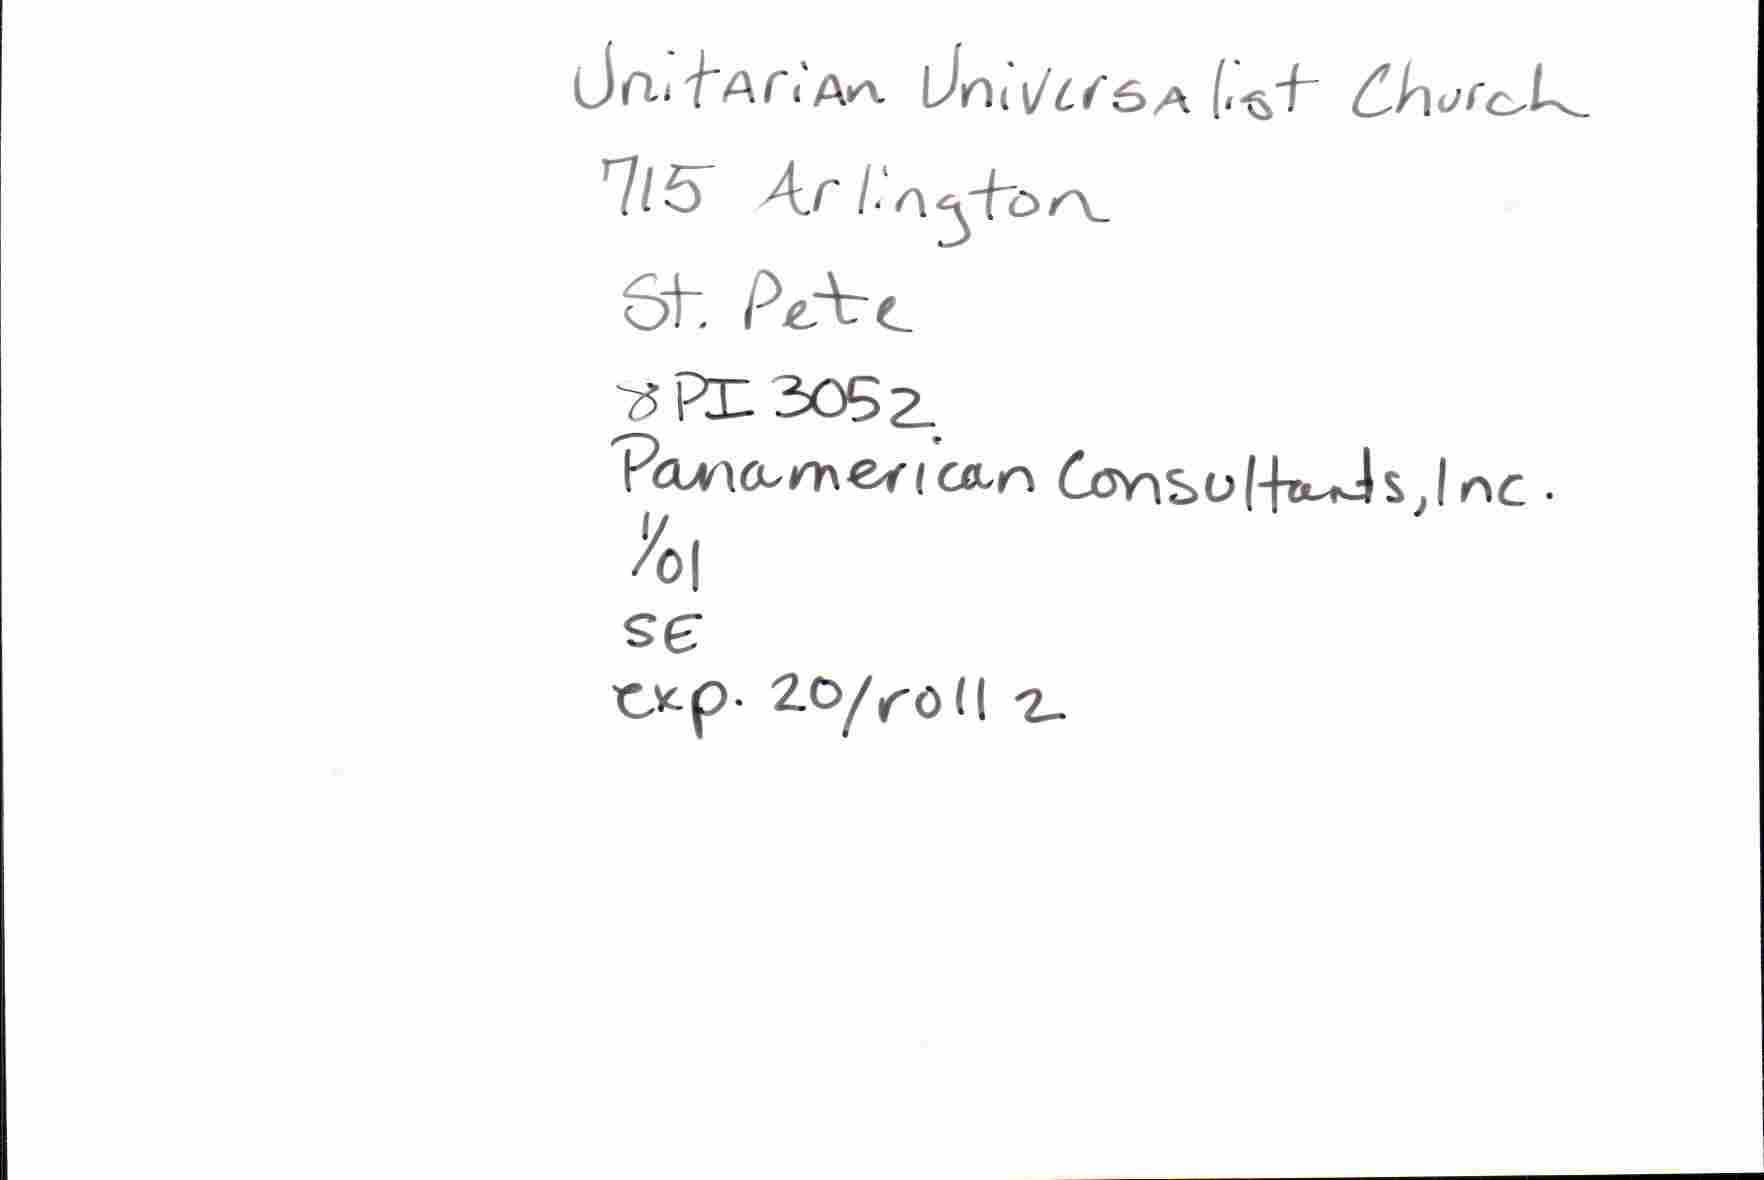 Unitarian Universalist Church
715 Arlington
St. Pete
8PI 3052
Panamerican Consultants, Inc.
1/01
SE
exp. 20/roll 2